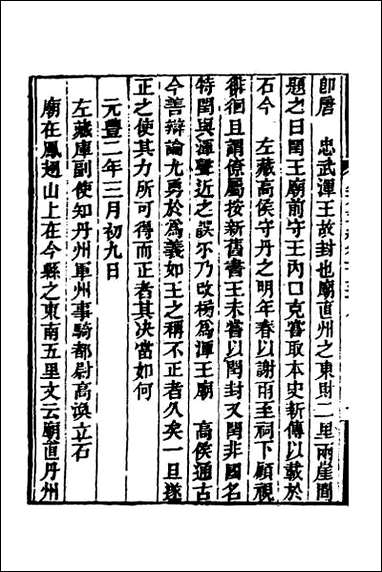 即唐　忠武渾王故封也廟直州之東財二里兩崖間
題之曰閏王廟前守王內口克當取本史新傳以載於
石今　左藏高侯守丹之明年春以謝雨至祠下顧視
徘徊且謂僚屬按新舊書王未嘗以閏封又閏非國名
特閏與渾聲近之誤不乃改榜為渾王廟　高侯通古
今善辯論尤勇於為義如王之稱不正者久矣一旦遂
正之使其力所可得而正者其決當如何
元豐二年三月初九日
左藏庫副使知丹州軍州事騎都尉高渙立石
廟在鳳翅山上在今縣之東南五里文云廟直丹州